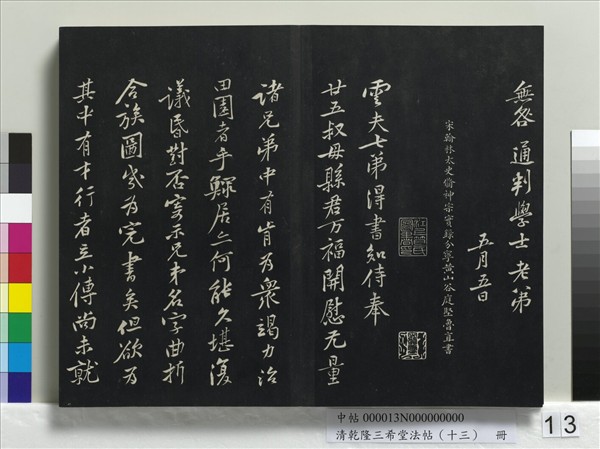 無咎通判學士老弟
五月五日
宋翰林太史脩神宗實錄分寧黃山谷庭堅魯直書
雲夫七弟得書知侍奉
廿五叔母縣君万福開慰无量
諸兄弟中有肯為衆竭力治
田園者乎鰥居亦何能久堪復
議昏對否寄示兄弟名字曲折
合族圖幾為完書矣但欲為
其中有才行者立小傳尚未就
中帖 000013N000000000
清乾隆三希堂法帖（十三） 冊
13